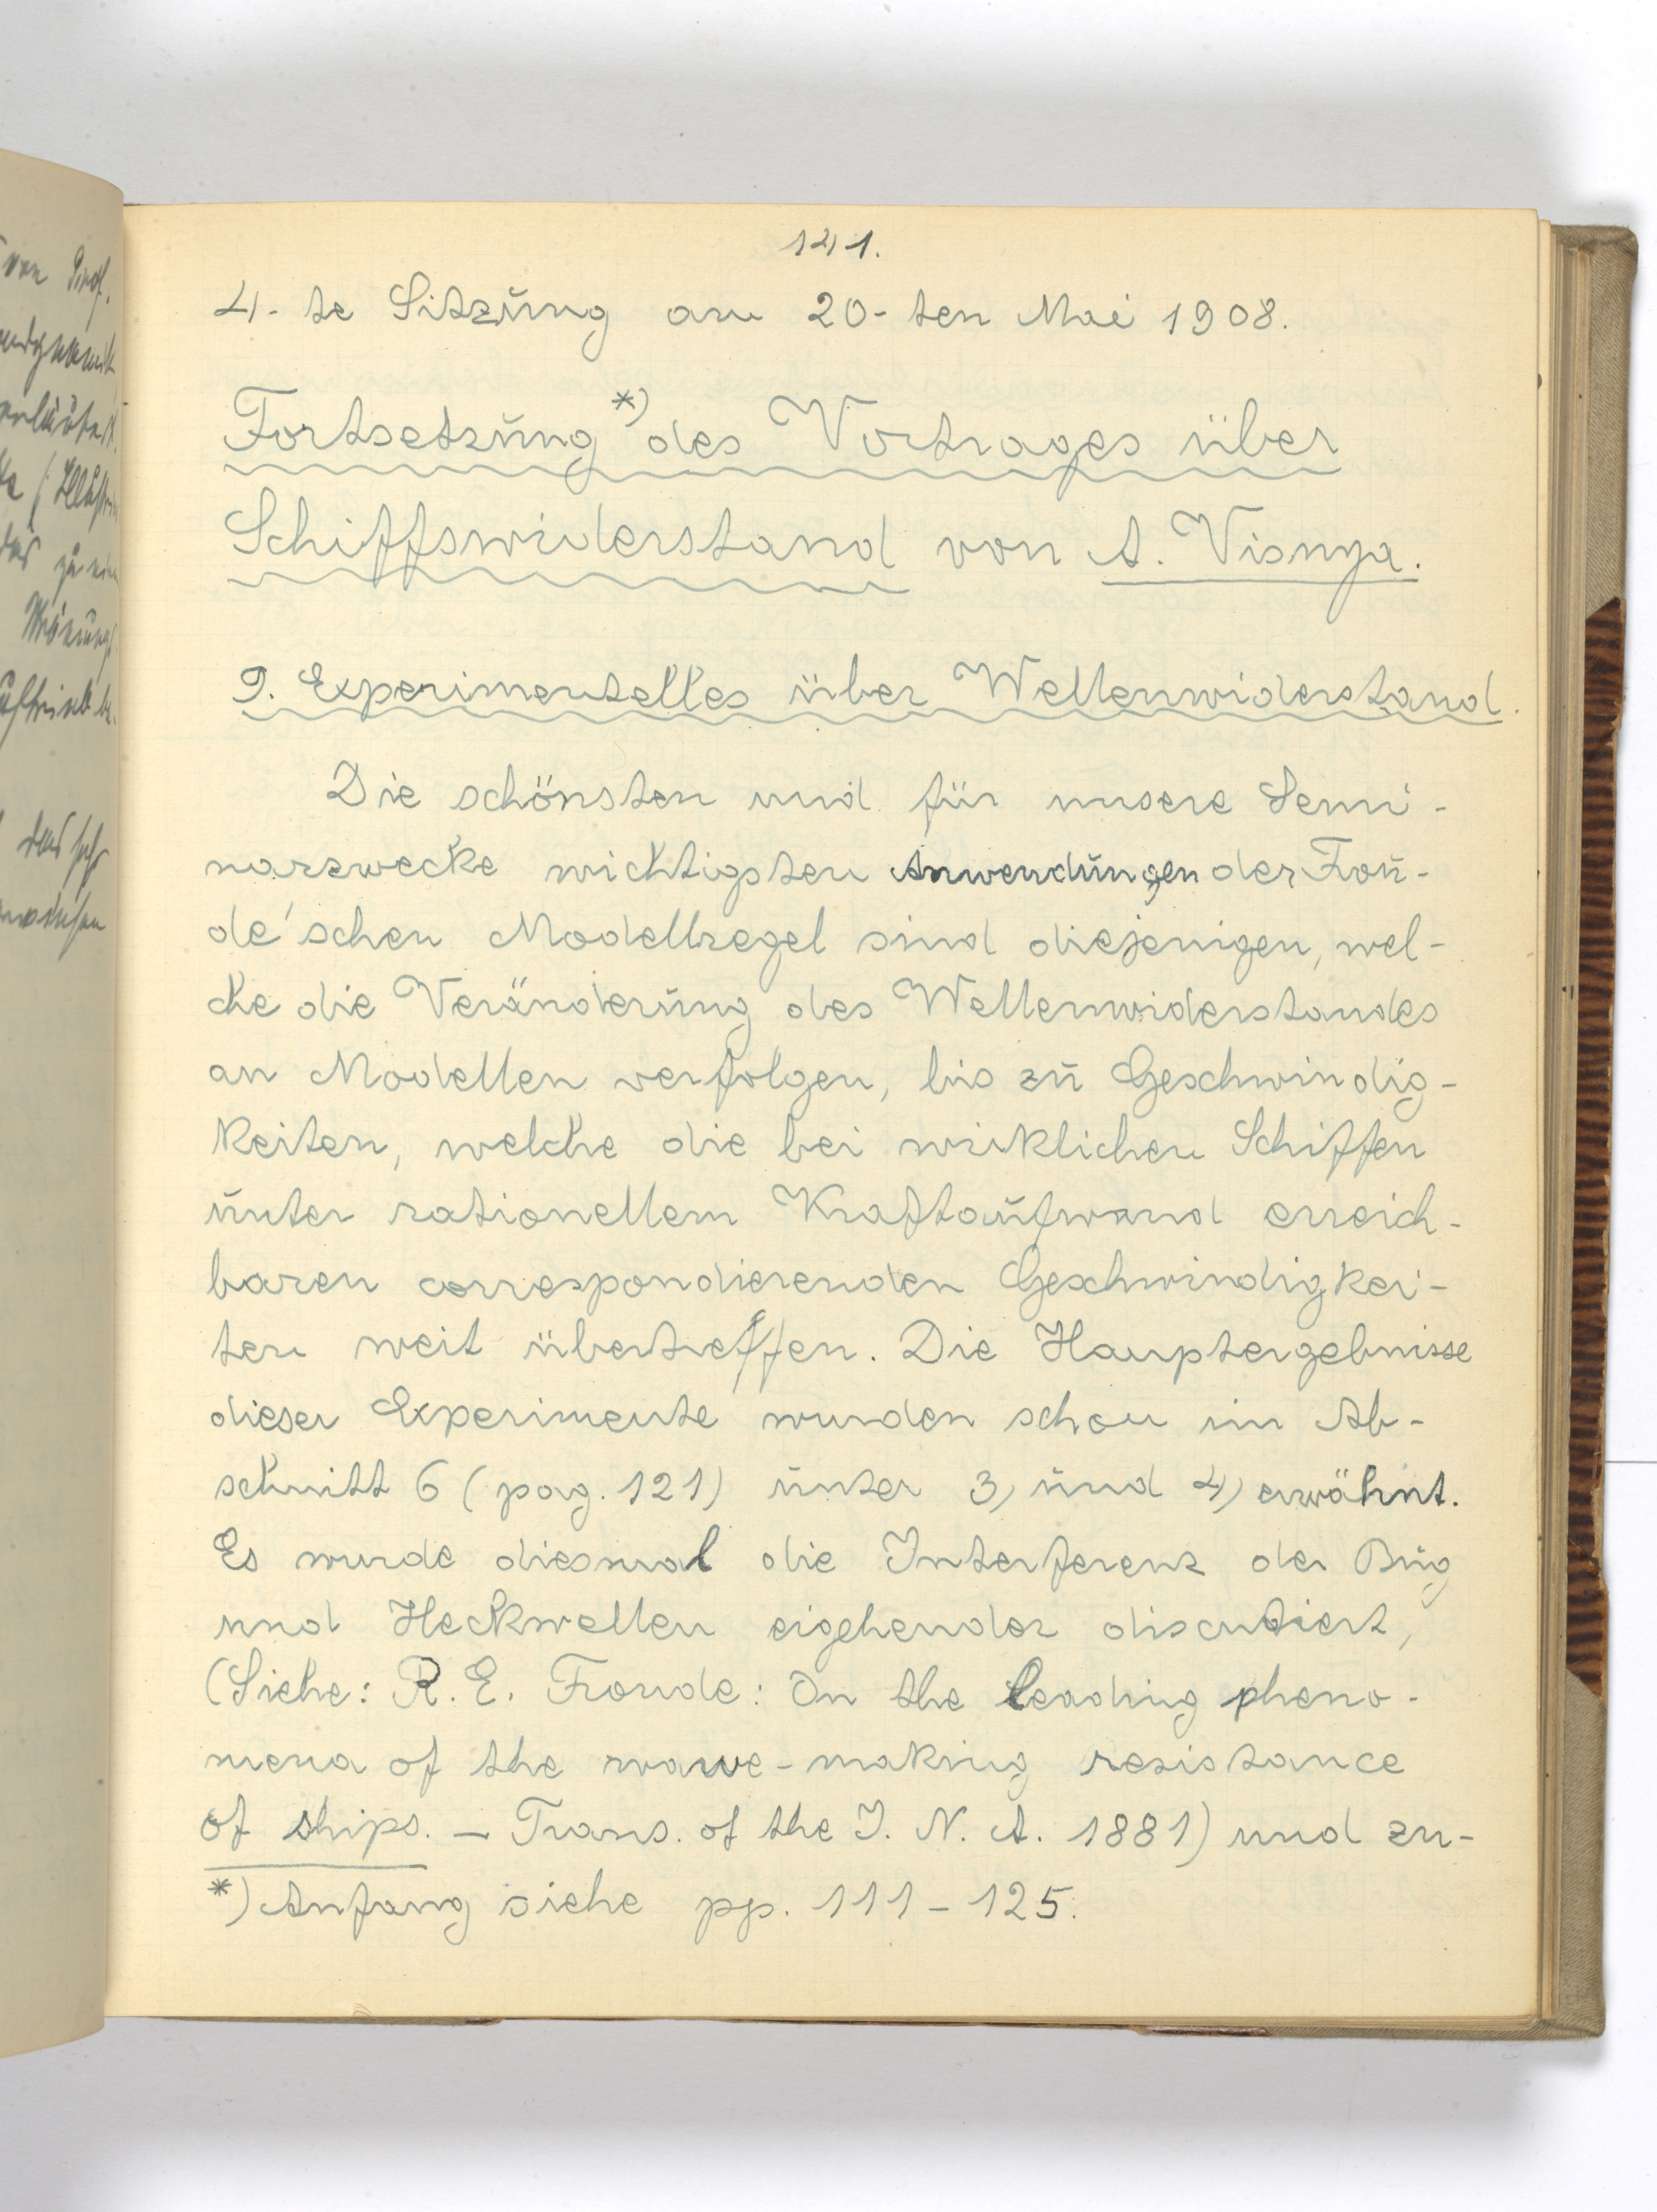 141.
4-te Sitzung am 20-ten Mai 1908.
Fortsetzung *) des Vortrages über
Schiffswiderstand von A. Visnya.
9. Experimentelles über Wellenwiderstand.
Die schönsten und für unsere Semi-
narzwecke wichtigsten Anwendungen der Frou-
de'schen Modellregel sind diejenigen, wel-
che die Veränderung des Wellenwiderstandes
an Modellen verfolgen, bis zu Geschwindig-
keiten, welche die bei wirklichen Schiffen
unter rationellem Kraftaufwand erreich-
baren correspondierenden Geschwindigkei-
ten weit übertreffen. Die Hauptergebnisse
dieser Experimente wurden schon im Ab-
schnitt 6 (pag. 121) unter 3) und 4) erwähnt.
Es wurde diesmal die Interferenz der Bug
und Heckwellen eigehender discutiert,
(Siehe: R. E. Froude: On the leading pheno-
mena of the wawe-making resistance
of ships. – Trans. of the I. N. A. 1881) und zu-
*) Anfang siehe pp. 111 – 125.
von Prof.